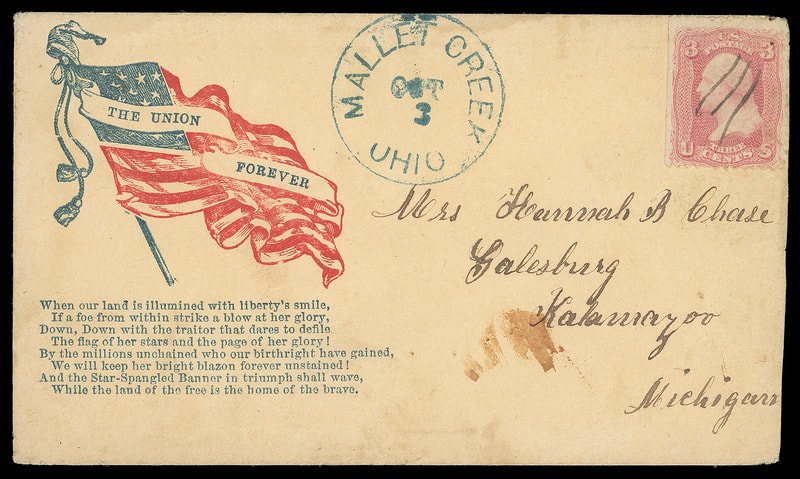 THE UNION
FOREVER
MALLET CREEK
OCT
3
OHIO
3 U.S. 3
POSTAGE
U THREE S
CENTS
Mrs Hannah B Chase
Galesburg
Kalamazoo
Michigan
When our land is illumined with liberty's smile,
If a foe from within strike a blow at her glory,
Down, Down with the traitor that dares to defile
The flag of her stars and the page of her glory!
By the millions unchained who our birthright have gained,
We will keep her bright blazon forever unstained!
And the Star-Spangled Banner in triumph shall wave,
While the land of the free is the home of the brave.